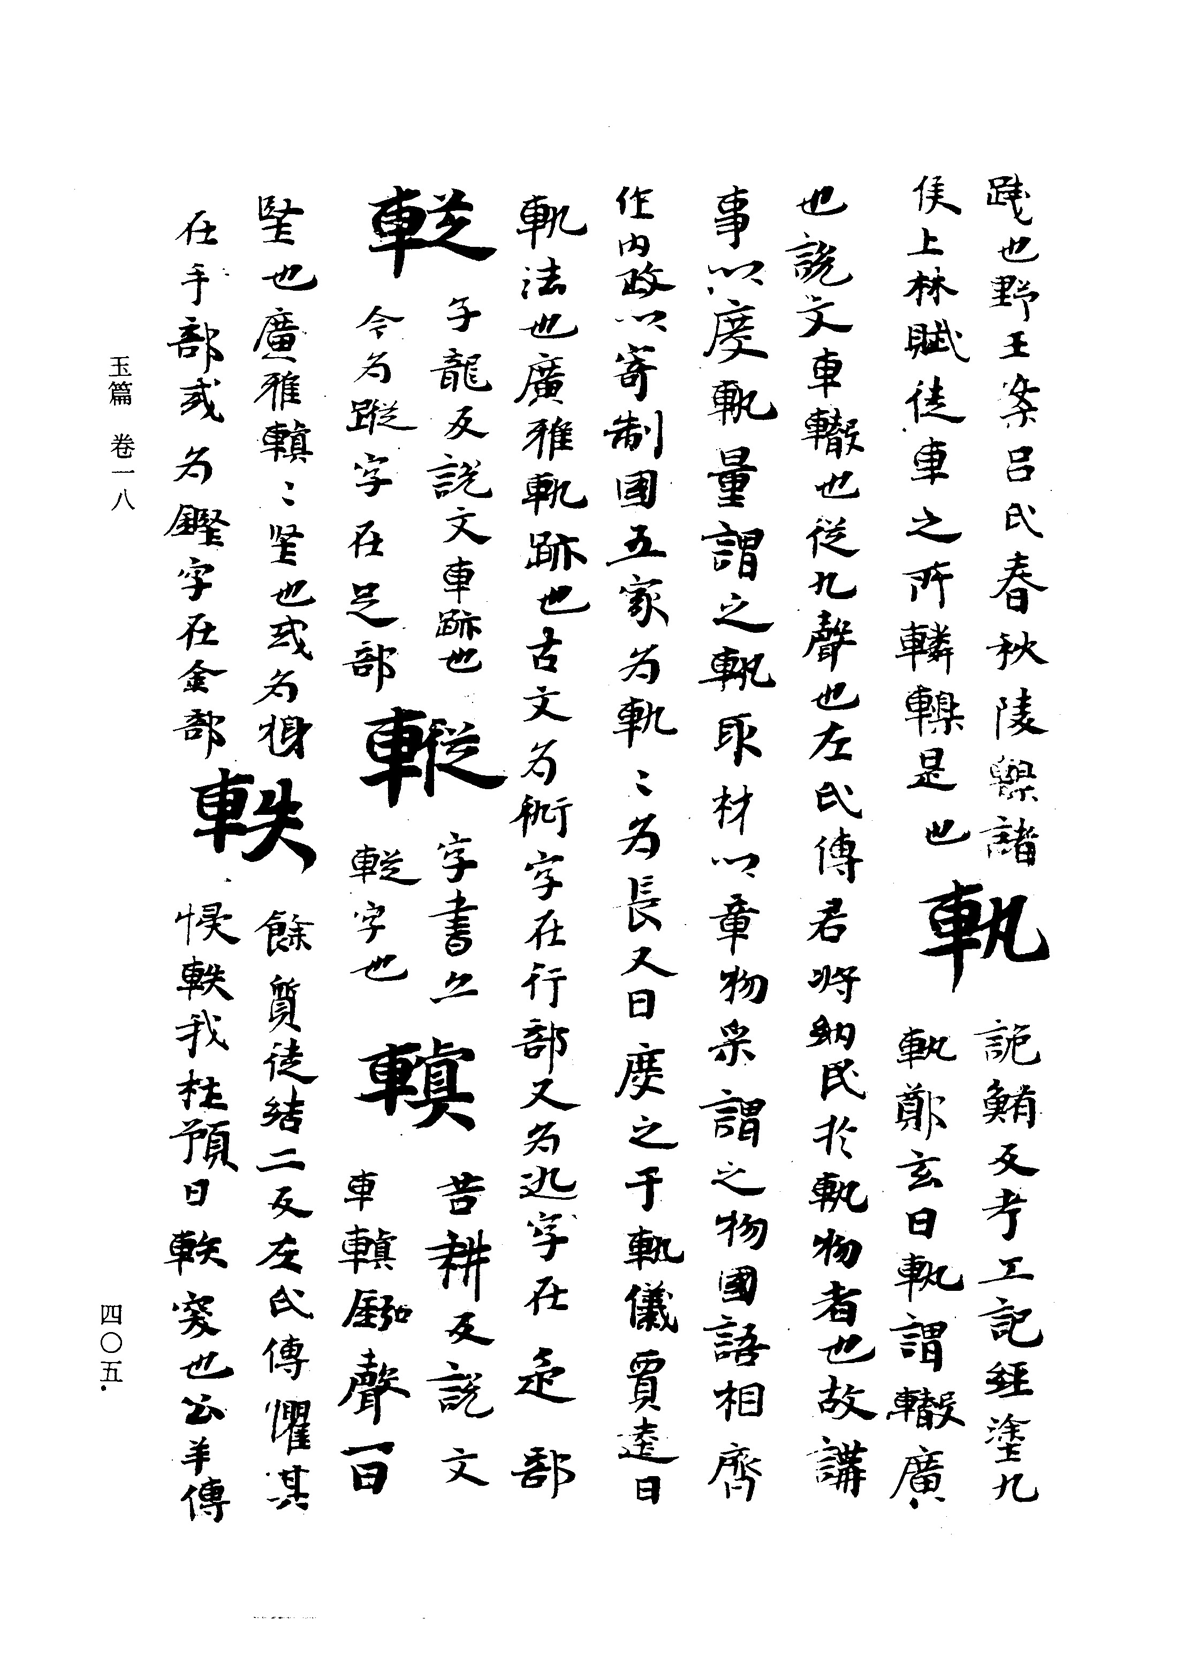 踐也野王案呂氏春秋陵轢諸
侯上林賦徒車之所轔轢是也
軌
詭鮪反考工記經塗九
軌鄭玄曰軌謂轍廣
也說文車轍也從九聲也左氏傳君將納民於軌物者也故講
事以度軌量謂之軌取材以章物采謂之物國語相齊
作內政以寄制國五家為軌〻為長又曰度之于軌儀賈逵曰
軌法也廣雅軌跡也古文為𨒟字在行部又為迒字在辵部
䡮
子龍反說文車跡也
今為蹤字在足部
轍
字書亦
䡮字也
䡩
苦耕反說文
車䡩鈏聲一曰
堅也廣雅䡩〻堅也或為
在手部或為鏗字在金部
軼
餘質徒結二反左氏傳懼其
侵軼我杜預曰軼突也公羊傳
玉篇 卷一八
四〇五